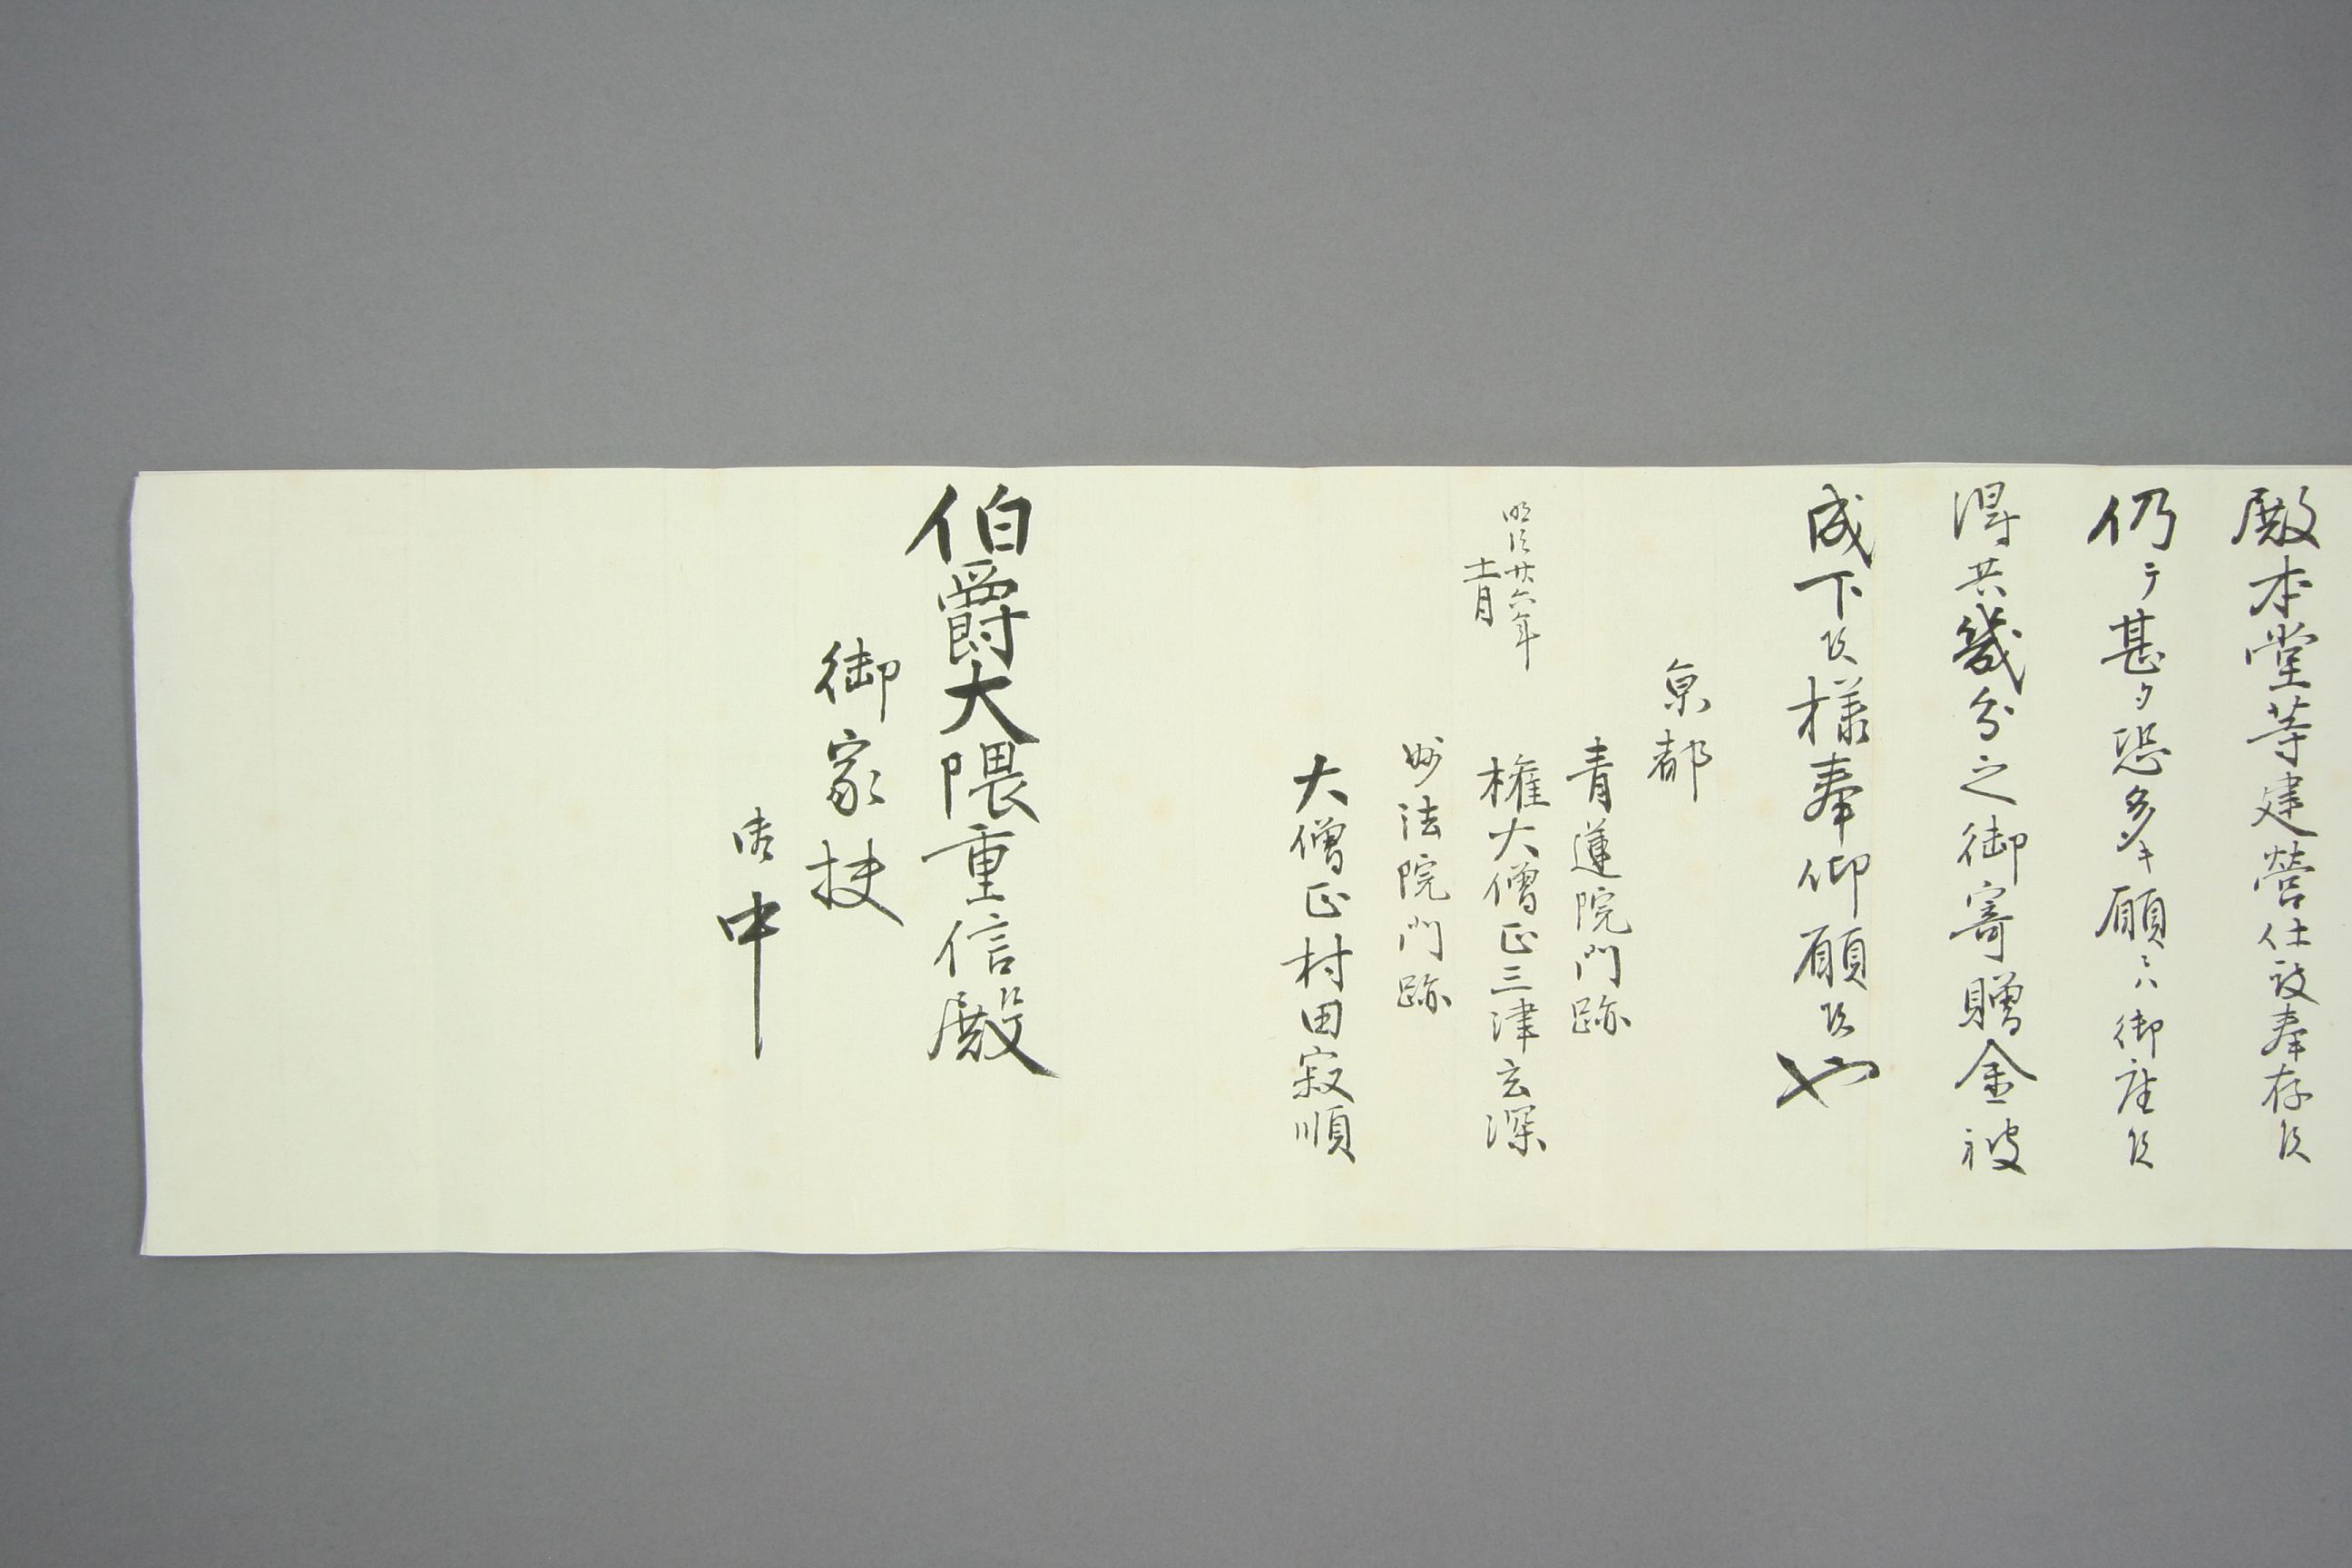 殿本堂等建営仕度奉存候
仍テ甚タ恐多キ願ニハ御座候
得共幾分之御寄贈金被
成下候様奉仰願候也
京都
青蓮院門跡
明治廿六年
十一月
権大僧正三津玄深
妙法院門跡
大僧正村田寂順
伯爵大隈重信殿
御家扶
御中